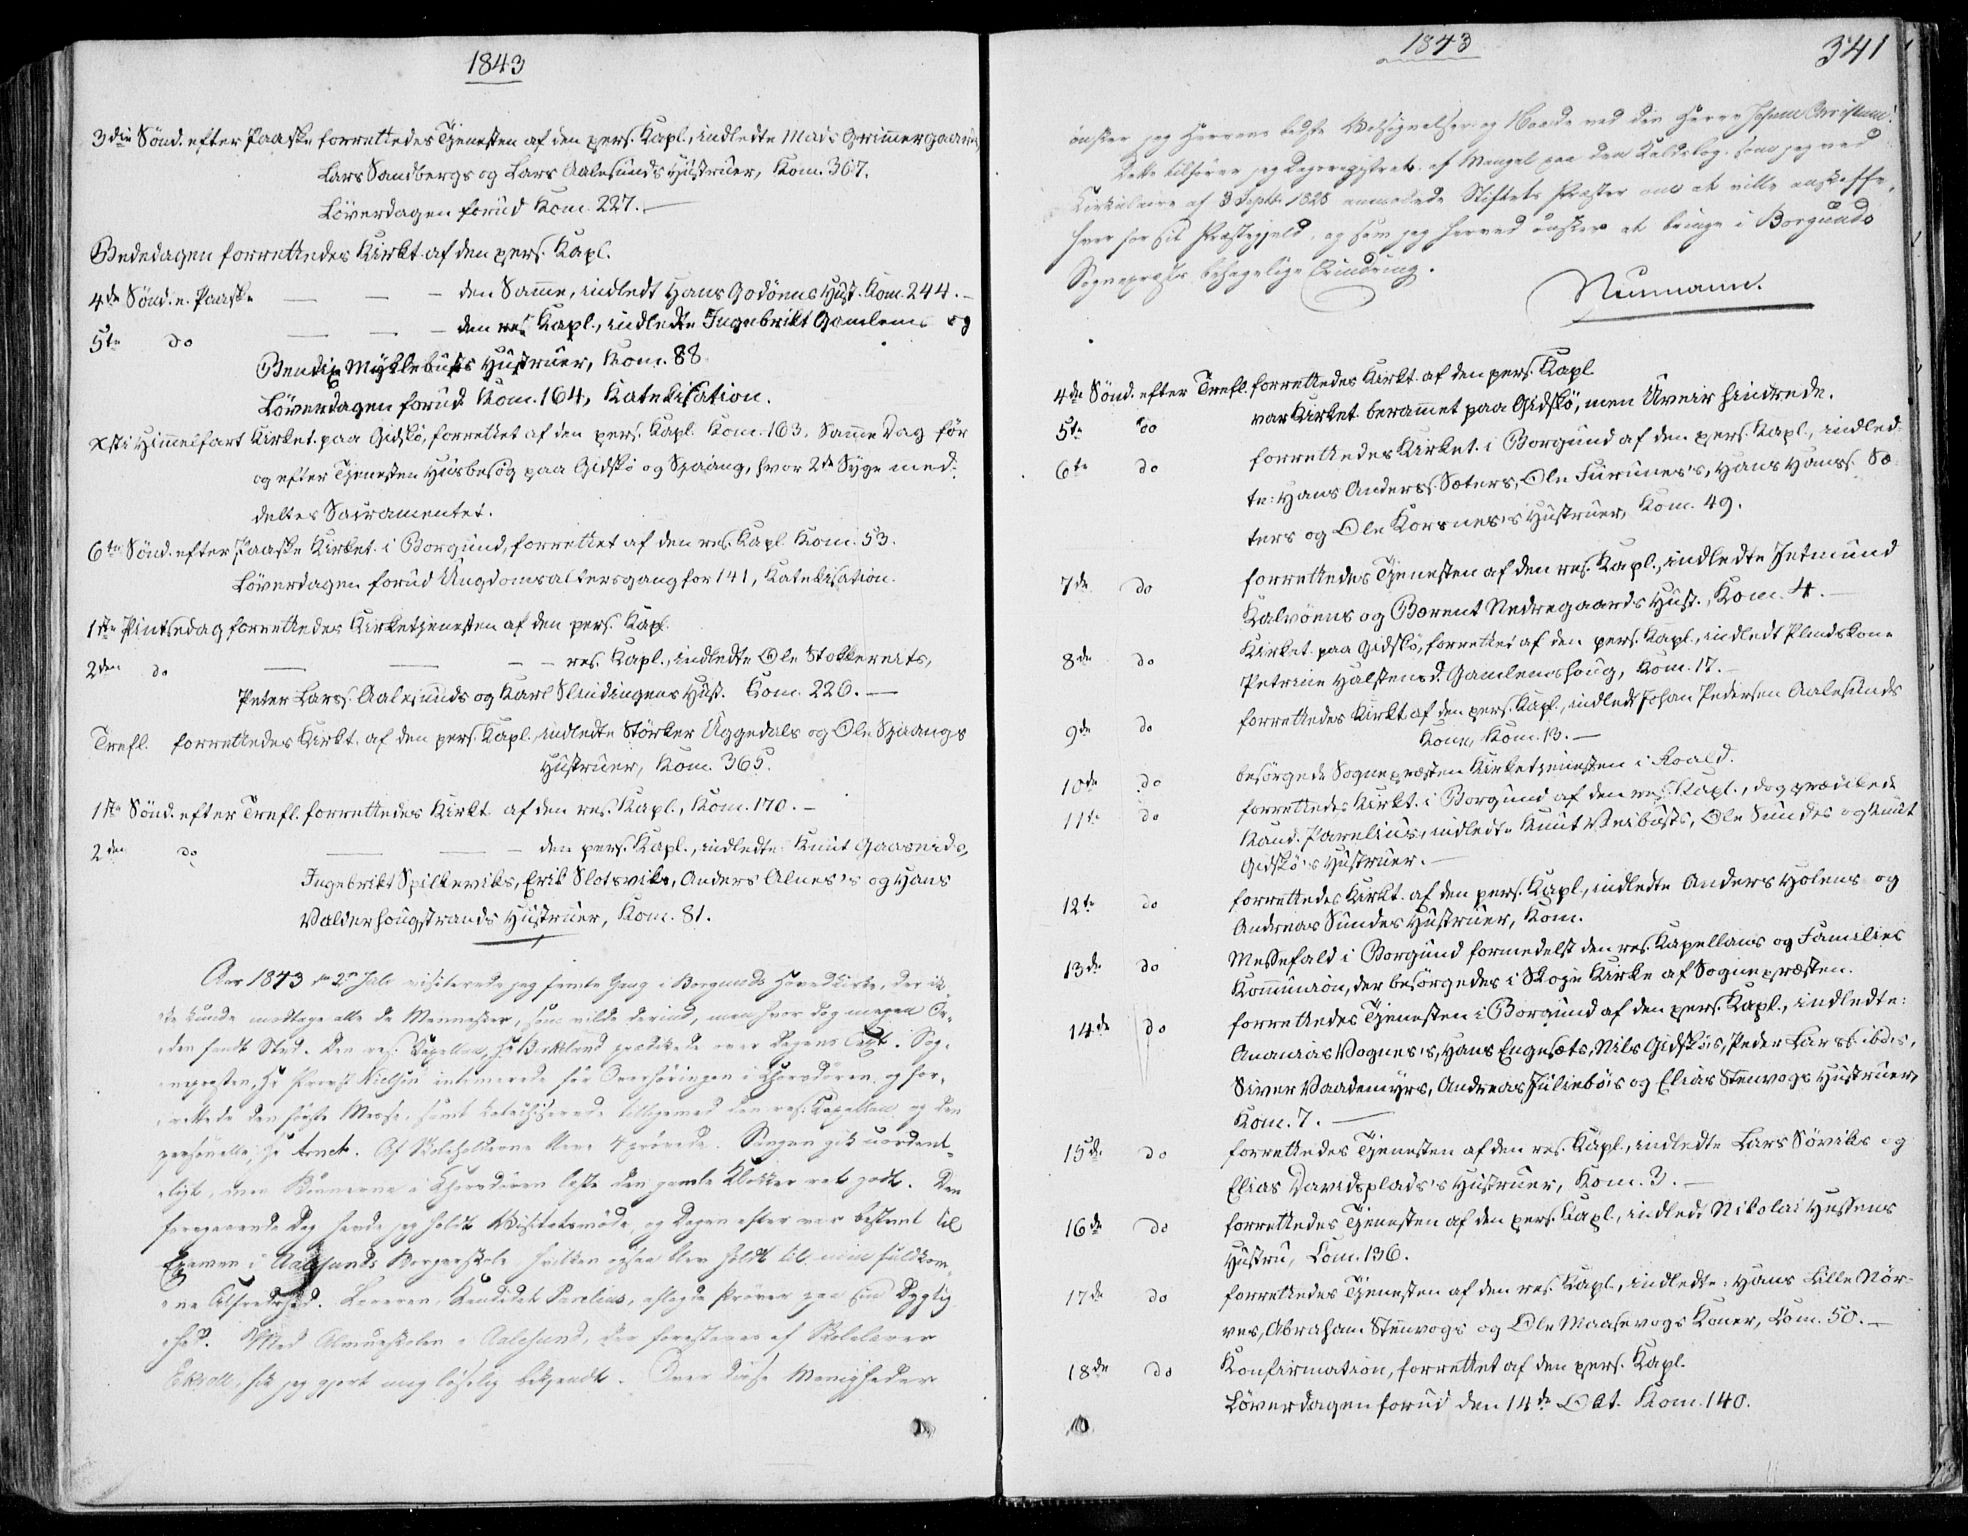 1843
3die Sønd. efter Paaske forrettedes Tjenesten af den pers. Kapl., indledte Mads Grimmergaards
Lars Sandbergs og Lars Aalesunds Hustruer, Kom. 367.
Løverdagen forud Kom. 227. —
Bededagen forrettedes Kirkt. af den pers. Kapl.
4de Sønd. e. Paaske — — — den Samme, indledt Hans Godøens Hust. Kom. 244. —
5te do — — — den res. Kapl., indledte Ingebrikt Gamlems og
Bendix Myklebusts Hustruer, Kom. 88
Løverdagen forud Kom. 164, Katekisation.
Xsti Himmelfart Kirket. paa Gidskø, forrettet af den pers. Kapl. Kom. 163. Samme Dag før
og efter Tjenesten Husbesøg paa Gidskø og Sjaang, hvor 2de Syge med-
deltes Sacramentet.
6te Sønd. efter Paaske Kirket. i Borgund, forrettet af den res. Kapl. Kom. 53.
Løverdagen forud Ungdomsaltersgang for 141, Katekisation.
1ste Pintsedag forrettedes Kirketjenesten af den pers. Kapl.
2den do — — — res. Kapl., indledte Ole Stokkereits,
Peter Larss. Aalesunds og Karl Slindingens Hust. Kom. 226. —
Trefl. forrettedes Kirkt. af den pers. Kapl., indledte Størker Uggedals og Ole Sjaangs
Hustruer, Kom. 365.
1ste Sønd. efter Trefl. forrettedes Kirkt. af den res. Kapl., Kom. 170. —
2den do — — — den pers. Kapl., indledte Knut Gaasneids,
Ingebrikt Spilkeviks, Erik Slotsviks, Anders Alnes's og Hans
Valderhougstrands Hustruer, Kom. 81.
Aar 1843 den 2den Juli visiterede jeg femte Gang i Borgunds Hovedkirke, der ik-
ke kunde modtage alle de Mennesker, som vilde derind, men hvor dog megen Or-
den fandt Sted. Den res. Capellan, Hr Birkeland prædikede over Dagens Text. Sog-
nepræsten, Hr Provst Nielsen intimerede før Overhøringen i Chorsdøren og for-
rettede den sidste Messe, samt katechiserede tilligemed den res. Capellan og den
personelle, Hr Arnet. Af Skoleholderne bleve 4 prøvede. Sangen gik uordent-
ligt, men Bønnerne i Chorsdøren læste den gamle Klokker ret godt. Den
foregaaende Dag havde jeg holdt Visitatsmøde, og Dagen efter var bestemt til
Examen i Aalesunds Borgerskole hvilken ogsaa blev holdt til min fuldkom-
ne Tilfredshed. Læreren, Kandidat Parelius, aflagde Prøver paa sin Dygtig-
hed. Med Almueskolen i Aalesund, der forestaaes af Skolelærer
fik jeg gjort mig løselig bekjendt. Over disse Menigheder
1843
341
ønsker jeg Herrens bedste Velsignelser og Naade ved den Herre Jesum Christum!
Dette tilfører jeg Dagsregistret af Mangel paa den Kaldsbog, som jeg ved
Cirkulaire af 3 Septbr 1828 anmodede Stiftets Præster om at ville anskaffe,
hver for sit Præstegjeld, og som jeg herved ønsker at bringe i Borgunds
Sognepræsts behagelige Erindring.
Neumann.
4de Sønd. efter Trefl. forrettedes Kirkt. af den pers. Kapl.
5te do var Kirket. berammet paa Gidskø, men Uveir hindrede.
6te do forrettedes Kirket. i Borgund af den pers. Kapl., indled-
te: Hans Anderss. Sæters, Ole Furunes's, Hans Hanss. Sæ-
ters og Ole Korsnes's Hustruer, Kom. 49.
7de do forrettedes Tjenesten af den res. Kapl., indledte Jetmund
Kalvøens og Berent Nedregaards Hust., Kom. 4. —
8de do Kirket. paa Gidskø, forrettet af den pers. Kapl., indledt Pladskone
Petrine Halstensd. Gamlemshoug, Kom. 17. —
9de do forrettedes Kirkt. af den pers. Kapl., indledt Johan Pedersen Aalesunds
Kone, Kom. 13. —
10de do besørgede Sognepræsten Kirketjenesten i Roald.
11te do forrettedes Kirkt. i Borgund af den res. Kapl., dog prædikede
Kand. Parelius, indledte Knut Veibusts, Ole Sundes og Knut
Gidskø's Hustruer. —
12te do forrettedes Kirkt. af den pers. Kapl., indledte Anders Holens og
Andreas Sundes Hustruer, Kom.
13de do Messefald i Borgund formedelst den res. Kapellans og Families
Kommunion, der besørgedes i Skoje Kirke af Sognepræsten.
14de do forrettedes Tjenesten i Borgund af den pers. Kapl., indledte:
Ananias Vognes's, Hans Engesæts, Nils Gidskøs, Peder Larss. ibds,
Siver Vaademyrs, Andreas Juliebøs og Elias Stenvogs Hustruer,
Kom. 7. —
15de do forrettedes Tjenesten af den res. Kapl., indledte Lars Søviks og
Elias Davidsplads's Hustruer, Kom. 3. —
16de do forrettedes Tjenesten af den pers. Kapl., indledt Nikolai Hessens
Hustru, Kom. 136.
17de do forrettedes Tjenesten af den res. Kapl., indledte: Hans Lille Nør-
ves, Abraham Stenvogs og Ole Maasevogs Koner, Kom. 50. —
18de do Konfirmation, forrettet af den pers. Kapl.
Løverdagen forud den 14de Okt. Kom. 140.